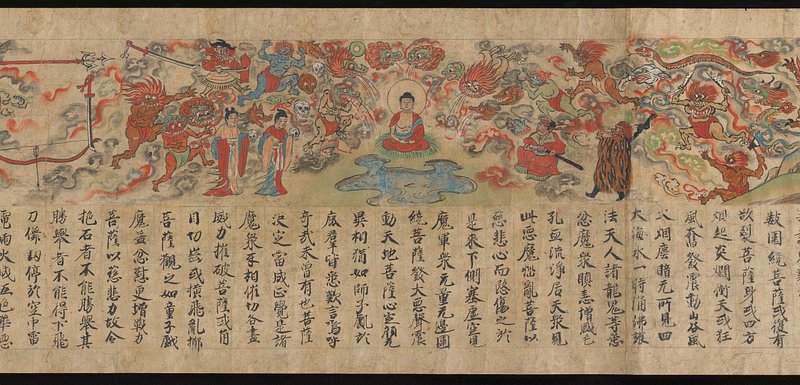 數圍繞菩薩或復有
欲裂菩薩身或四方
烟起焱爛衝天或狂
風奮發震動山谷風
火烟塵暗无所見四
大海水一時涌沸護
法天人諸龍鬼等悉
忿魔衆瞋恚增盛毛
孔血流淨居天衆見
此惡魔惱亂菩薩以
慈悲心而愍傷之於
是來下側塞虛空見
魔軍衆无量无邊圍
繞菩薩發大惡聲震
動天地菩薩心定顏
異相猶如師子處於
鹿羣皆悉歎言嗚呼
奇哉未曾有也菩薩
決定當成正覺是諸
魔衆互相催切各盡
威力摧破菩薩或角
目切齒或橫飛亂擲
菩薩觀之如童子戲
魔益忿懟更增戰力
菩薩以慈悲力故令
抱石者不能勝舉其
勝舉者不能得下飛
刀儛劒停於空中雷
電雨火成五色華惡